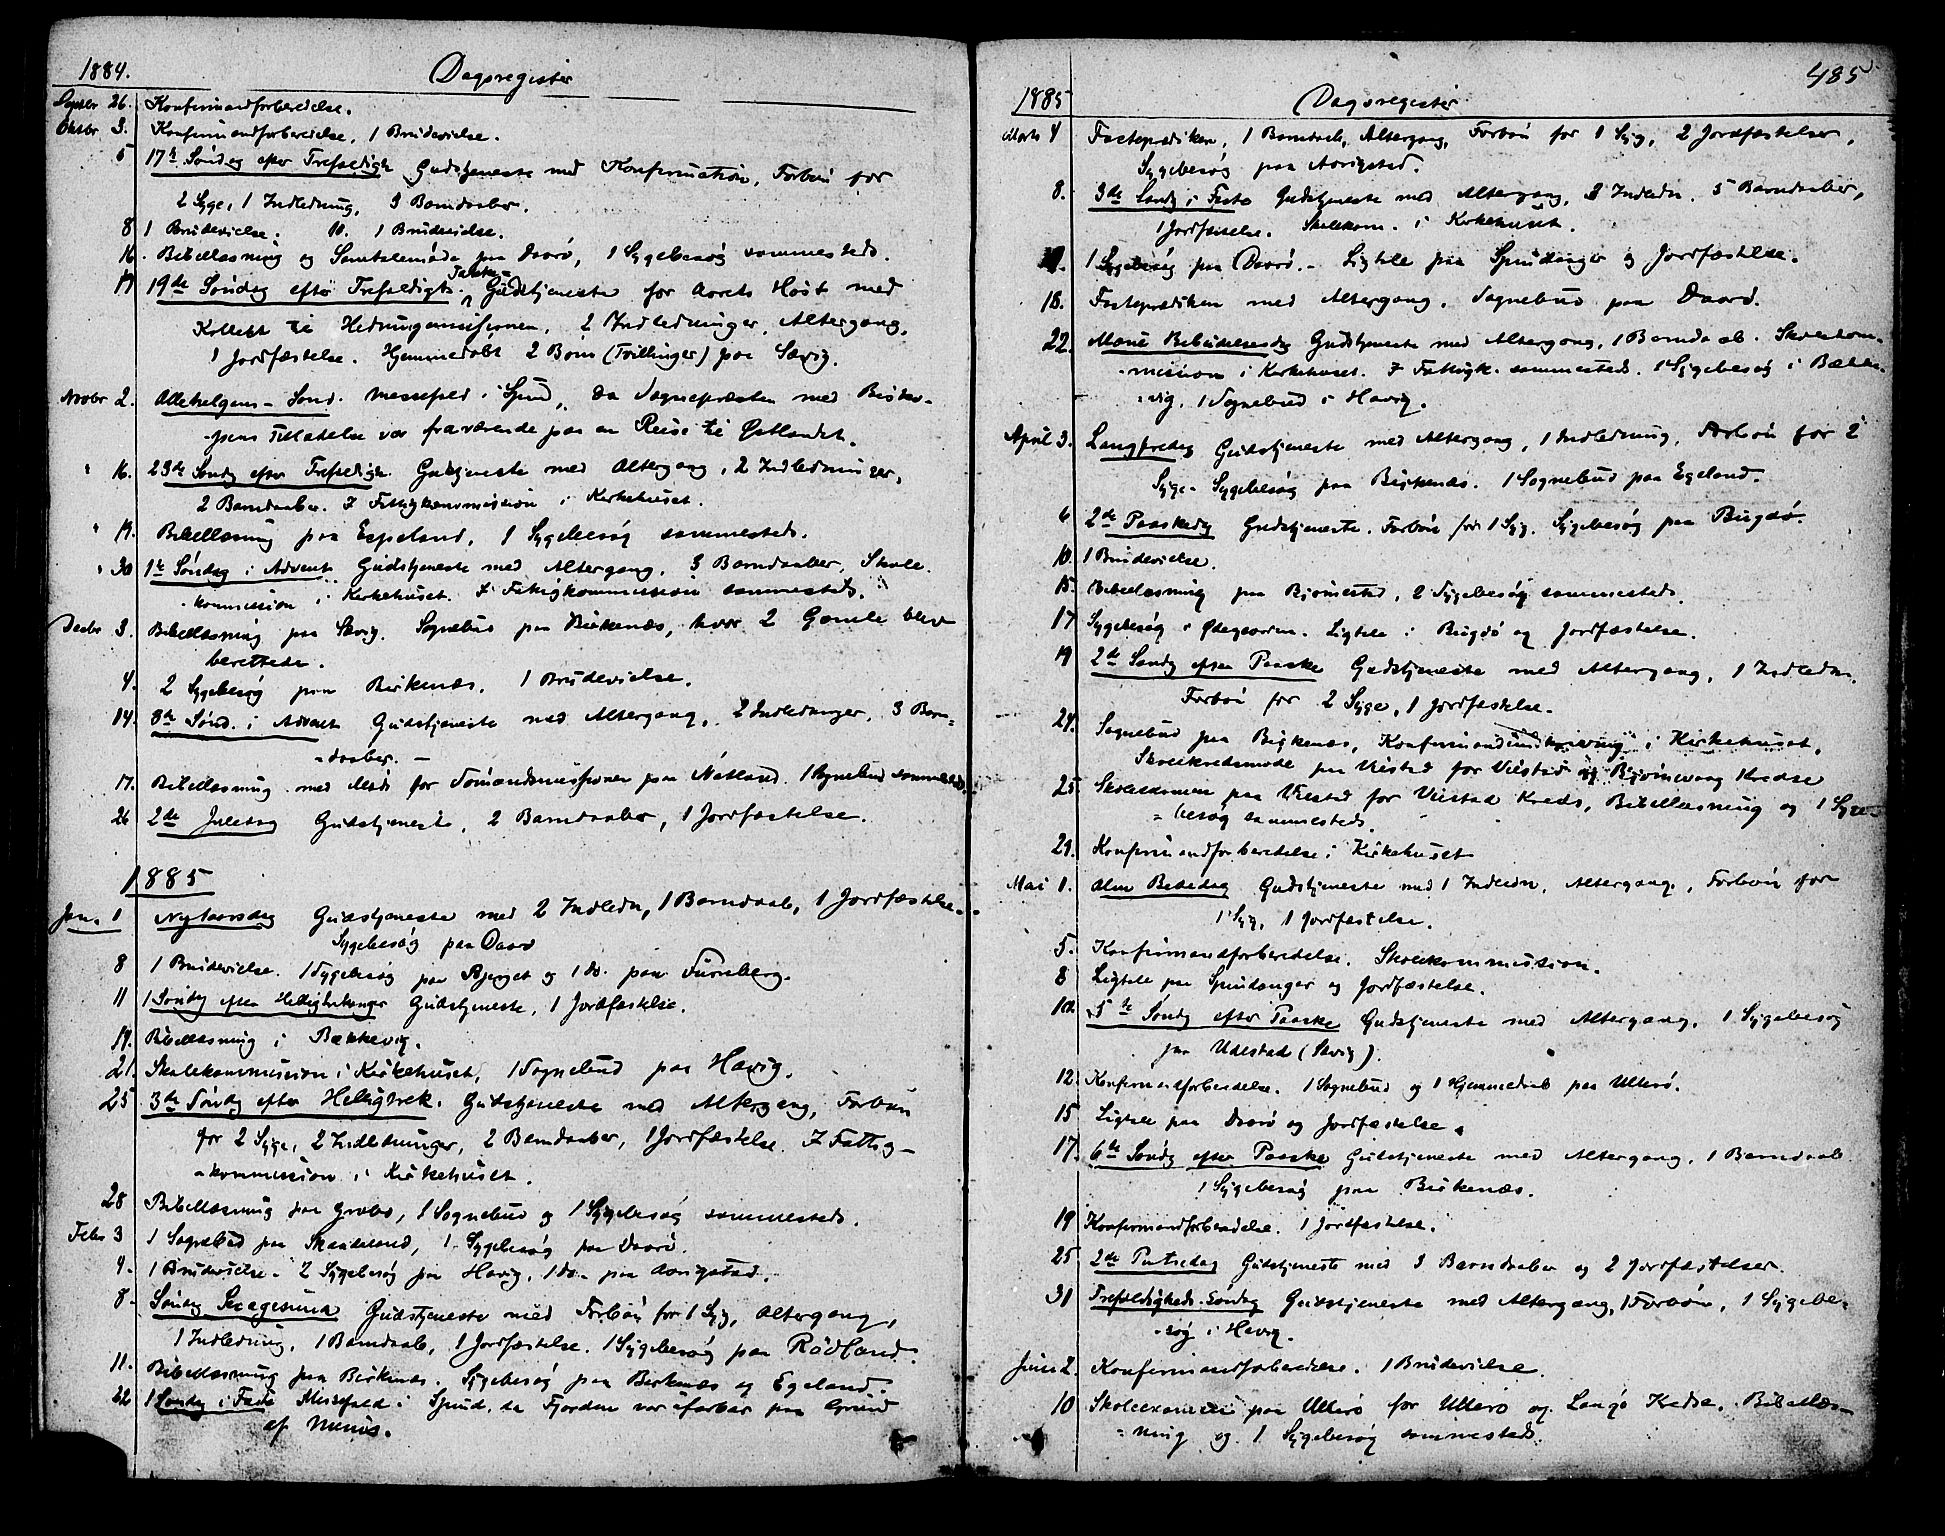 1884. Dagsregister
Septbr 26. Konfirmandforberedelse.
Oktbr 3. Konfirmandforberedelse, 1 Brudevielse.
5 17de Søndag efter Trefoldigh Gudstjeneste med Konfirmation, Forbøn for
2 Syge, 1 Indledning, 3 Barndaaber.
8 1 Brudevielse. 10. 1 Brudevielse.
16. Bibellæsning og Samtalemøde paa Daarø, 1 Sygebesøg sammesteds.
19 19de Søndag efter Trefoldigh. Takke-Gudstjeneste for Aarets Høst med
Kollekt til Hedningemissionen, 2 Indledninger, Altergang,
1 Jordfæstelse. Hjemmedøbt 2 Børn (Tvillinger) paa Sævig.
Novbr 2. Allehelgens-Sønd. Messefald i Spind, da Sognepræsten med Bisko-
-pens Tilladelse var fraværende paa en Reise til Østlandet.
" 16. 23de Søndg efter Trefoldigh. Gudstjeneste med Altergang, 2 Indledninger,
2 Barndaaber. F Fattigkommission i Kirkehuset.
" 19. Bibellæsning paa Espeland, 1 Sygebesøg sammesteds.
" 30 1te Søndag i Advent Gudstjeneste med Altergang, 3 Barndaaber, Skole-
-kommission i Kirkehuset. F Fattigkommission sammesteds.
Decbr 3. Bibellæsning paa Sævig. Sognebud paa Birkenæs, hvor 2 Gamle blev
berettede.
4. 2 Sygebesøg paa Birkenæs. 1 Brudevielse.
14. 3de Sønd. i Advent Gudstjeneste med Altergang, 2 Indledninger, 3 Barn-
-daaber. -
17. Bibellæsning med Møde for Sømandsmissionen paa Nåtland. 1 Sognebud sammesteds.
26 2de Juledag Gudstjeneste, 2 Barndaaber, 1 Jordfæstelse.
1885
Jan. 1 Nytaarsdag Gudstjeneste med 2 Indledn, 1 Barndaab, 1 Jordfæstelse.
Sygebesøg paa Daarø
8 1 Brudevielse. 1 Sygebesøg paa Bjerget og 1 do. paa Fureberg.
11 1 Søndg efter Hellig3konger Gudstjeneste, 1 Jordfæstelse.
14. Bibellæsning i Bækkevig.
21. Skolekommission i Kirkehuset, 1 Sognebud paa Havig.
25 3de Søndg efter Hellig3rek. Gudstjeneste med Altergang, Forbøn
for 2 Syge, 2 Indledninger, 2 Barndaaber, 1 Jordfæstelse. F Fattig-
-kommission i Kirkehuset.
28 Bibellæsning paa 1 Sognebud og 1 Sygebesøg sammesteds.
Febr 3 1 Sognebud paa Skandeland, 1 Sygebesøg paa Daarø.
4. 1 Brudevielse. 2 Sygebesøg paa Havig, 1 do. paa Aarigstad.
8. Søndg Sexagesima Gudstjeneste med Forbøn for 1 Syg, Altergang,
1 Indledning, 1 Barndaab, 1 Jordfæstelse. 1 Sygebesøg paa Rødland.
11. Bibellæsning paa Birkenæs. Sygebesøg paa Birkenæs og Egeland.
22 1 Søndg i Faste Messefald i Spind, da Fjorden var ufarbar paa Grund
af Menis.
485
1885 Dagsregister
Marts 4 Fasteprædiken, 1 Barndaab, Altergang, Forbøn for 1 Syg, 2 Jordfæstelser,
Sygebesøg paa Aarigstad.
8. 3de Søndg i Faste Gudstjeneste med Altergang, 3 Indledn. 5 Barndaaber,
1 Jordfæstelse. Skolekom. i Kirkehuset.
1 Sygebesøg paa Daarø. - Ligtale paa Spindanger og Jordfæstelse.
18. Fasteprædiken med Altergang. Sognebud paa Daarø.
22. Mariæ Bebudelsesdg Gudstjeneste med Altergang, 1 Barndaab. Skolekom-
-mission i Kirkehuset. F Fattigk. sammesteds. 1 Sygebesøg i Bække-
-vig, 1 Sognebud i Havig.
April 3. Langfredag Gudstjeneste med Altergang, 1 Indledning, Forbøn for 2
Syge. Sygebesøg paa Birkenæs. 1 Sognebud paa Egeland.
6 2de Paaskedg Gudstjeneste. Forbøn for 1 Syg. Sygebesøg paa Bugdø.
10. 1 Brudevielse.
15. Bibellæsning paa Bjørnestad, 2 Sygebesøg sammesteds.
17 Sygebesøg i Ødegaarden. Ligtale i Bugdø og Jordfæstelse.
19 2de Søndg efter Paaske Gudstjeneste med Altergang, 1 Indledn.
Forbøn for 2 Syge, 1 Jordfæstelse.
24. Sognebud paa Birkenæs, Konfirmandindskrivning i Kirkehuset.
Skolekredsmøde paa Ulestad for Ulestad og Bjørnevaag Kredse
25 Skoleexamen paa Ulestad for Ulestad Kreds, Bibellæsning og 1 Syge-
-besøg sammesteds.
29. Konfirmandforberedelse i Kirkehuset
Mai 1. Alm Bededag Gudstjeneste med 1 Indledn, Altergang, Forbøn for
1 Syg, 1 Jordfæstelse.
5. Konfirmandforberedelse. Skolekommission.
8 Ligtale paa Spindanger og Jordfæstelse.
10. 5te Søndg efter Paaske Gudstjeneste med Altergang, 1 Sygebesøg
paa Ulestad (Sævig).
12. Konfirmandforberedelse. 1 Sognebud og 1 Hjemmedaab paa Ullerø.
15 Ligtale paa Daarø og Jordfæstelse.
17. 6te Søndg efter Paaske Gudstjeneste med Altergang, 1 Barndaab
1 Sygebesøg paa Birkenæs.
19 Konfirmandforberedelse. 1 Jordfæstelse.
25 2de Pintsedag Gudstjeneste med 3 Barndaaber og 2 Jordfæstelser.
31 Trefoldigheds-Søndag Gudstjeneste med Altergang, 1 Forbøn, 1 Sygebe-
-søg i Havig.
Juni 2. Konfirmandforberedelse. 1 Brudevielse.
10 Skoleexamen paa Ullerø for Ullerø og Langø Kredse. Bibellæs-
-ning og 1 Sygebesøg sammesteds.